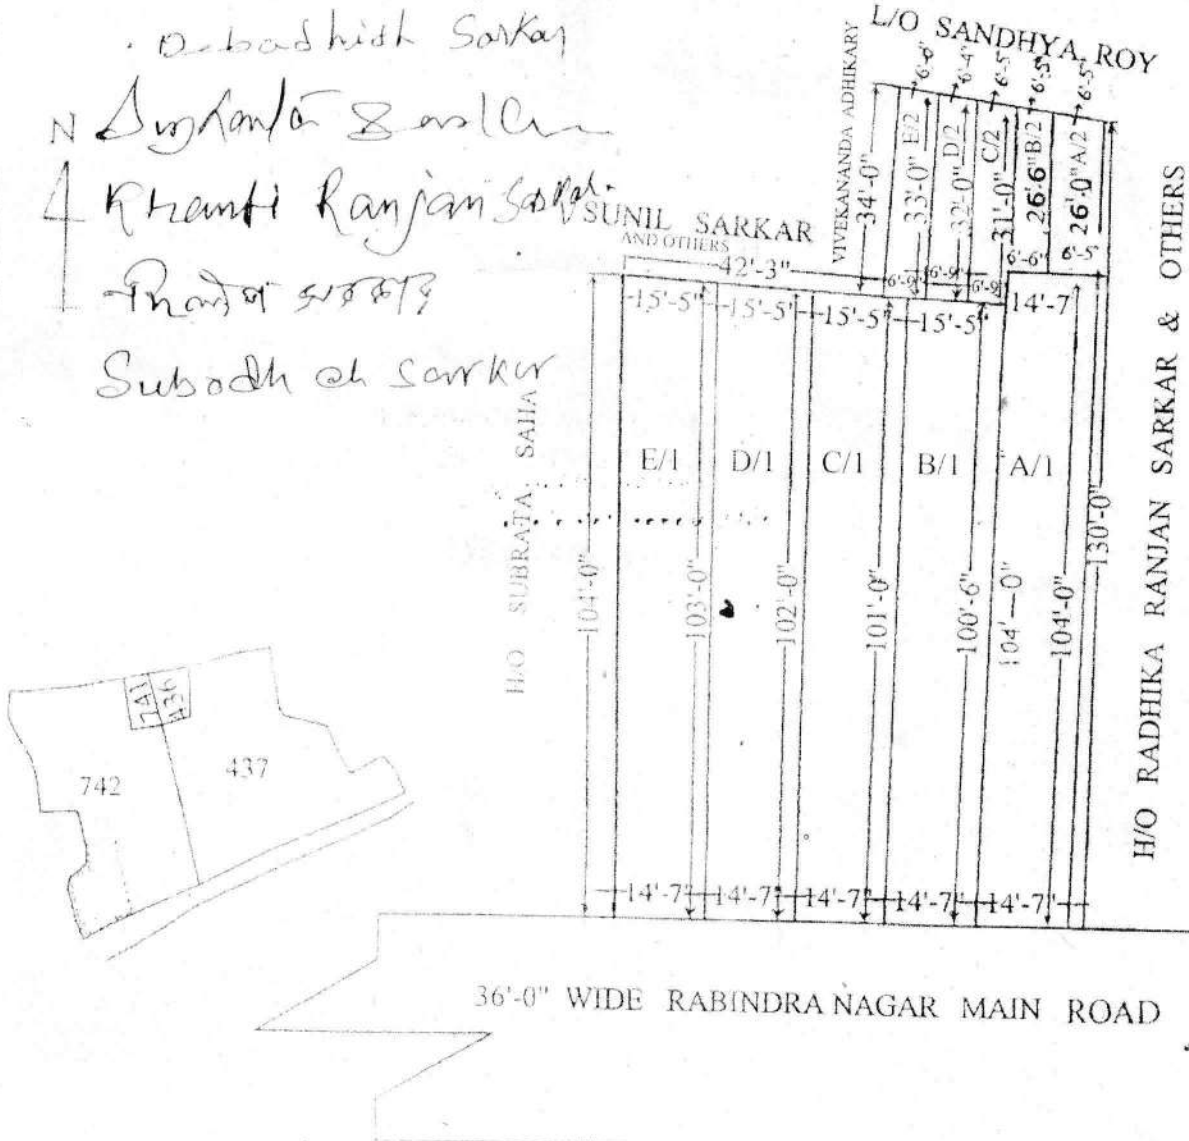 Debadhish Sarkar
N
Khanti Ranjan Sarkar
সরকার
Subodh ch Sarkar
L/O SANDHYA ROY
VIVEKANANDA ADHIKARY
6'-6" 6'-4" 6'-5" 6'-5" 6'-5"
34'-0" 33'-0" E/2 32'-0" D/2 31'-0" C/2 26'6" B/2 26'.0" A/2
SUNIL SARKAR
AND OTHERS
42'-3"
6'-9" 6'-9" 6'-9" 6'-6" 6'-5"
15'-5" 15'-5" 15'-5" 15'-5" 14'-7
H/O SUBRATA SAHA
E/1 D/1 C/1 B/1 A/1
104'-0" 103'-0" 102'-0" 101'-0" 100'-6" 104'—0" 104'-0" 130'-0"
H/O RADHIKA RANJAN SARKAR & OTHERS
741 436
742 437
14'-7" 14'-7" 14'-7" 14'-7" 14'-7"
36'-0" WIDE RABINDRA NAGAR MAIN ROAD